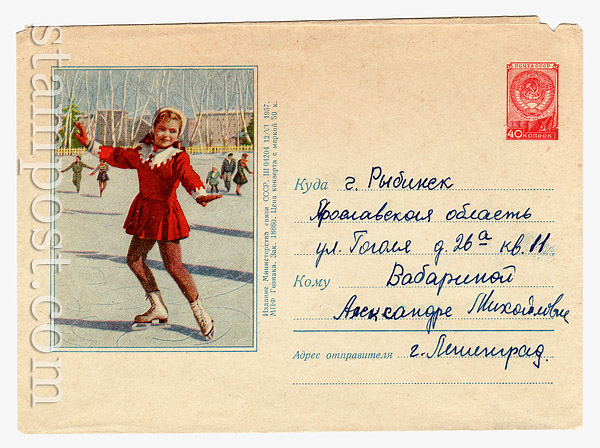 stampost.com
ПОЧТА СССР
40 КОПЕЕК
Издание Министерства связи СССР. Ш 04204 12/VI 1957.
МПФ Гознака. Зак. 18860. Цена конверта с маркой 50 к.
Куда г. Рыбинск
Ярославская область
ул. Гоголя д. 26а кв. 11
Кому Вабариной
Александре Михайловне
Адрес отправителя г. Ленинград.